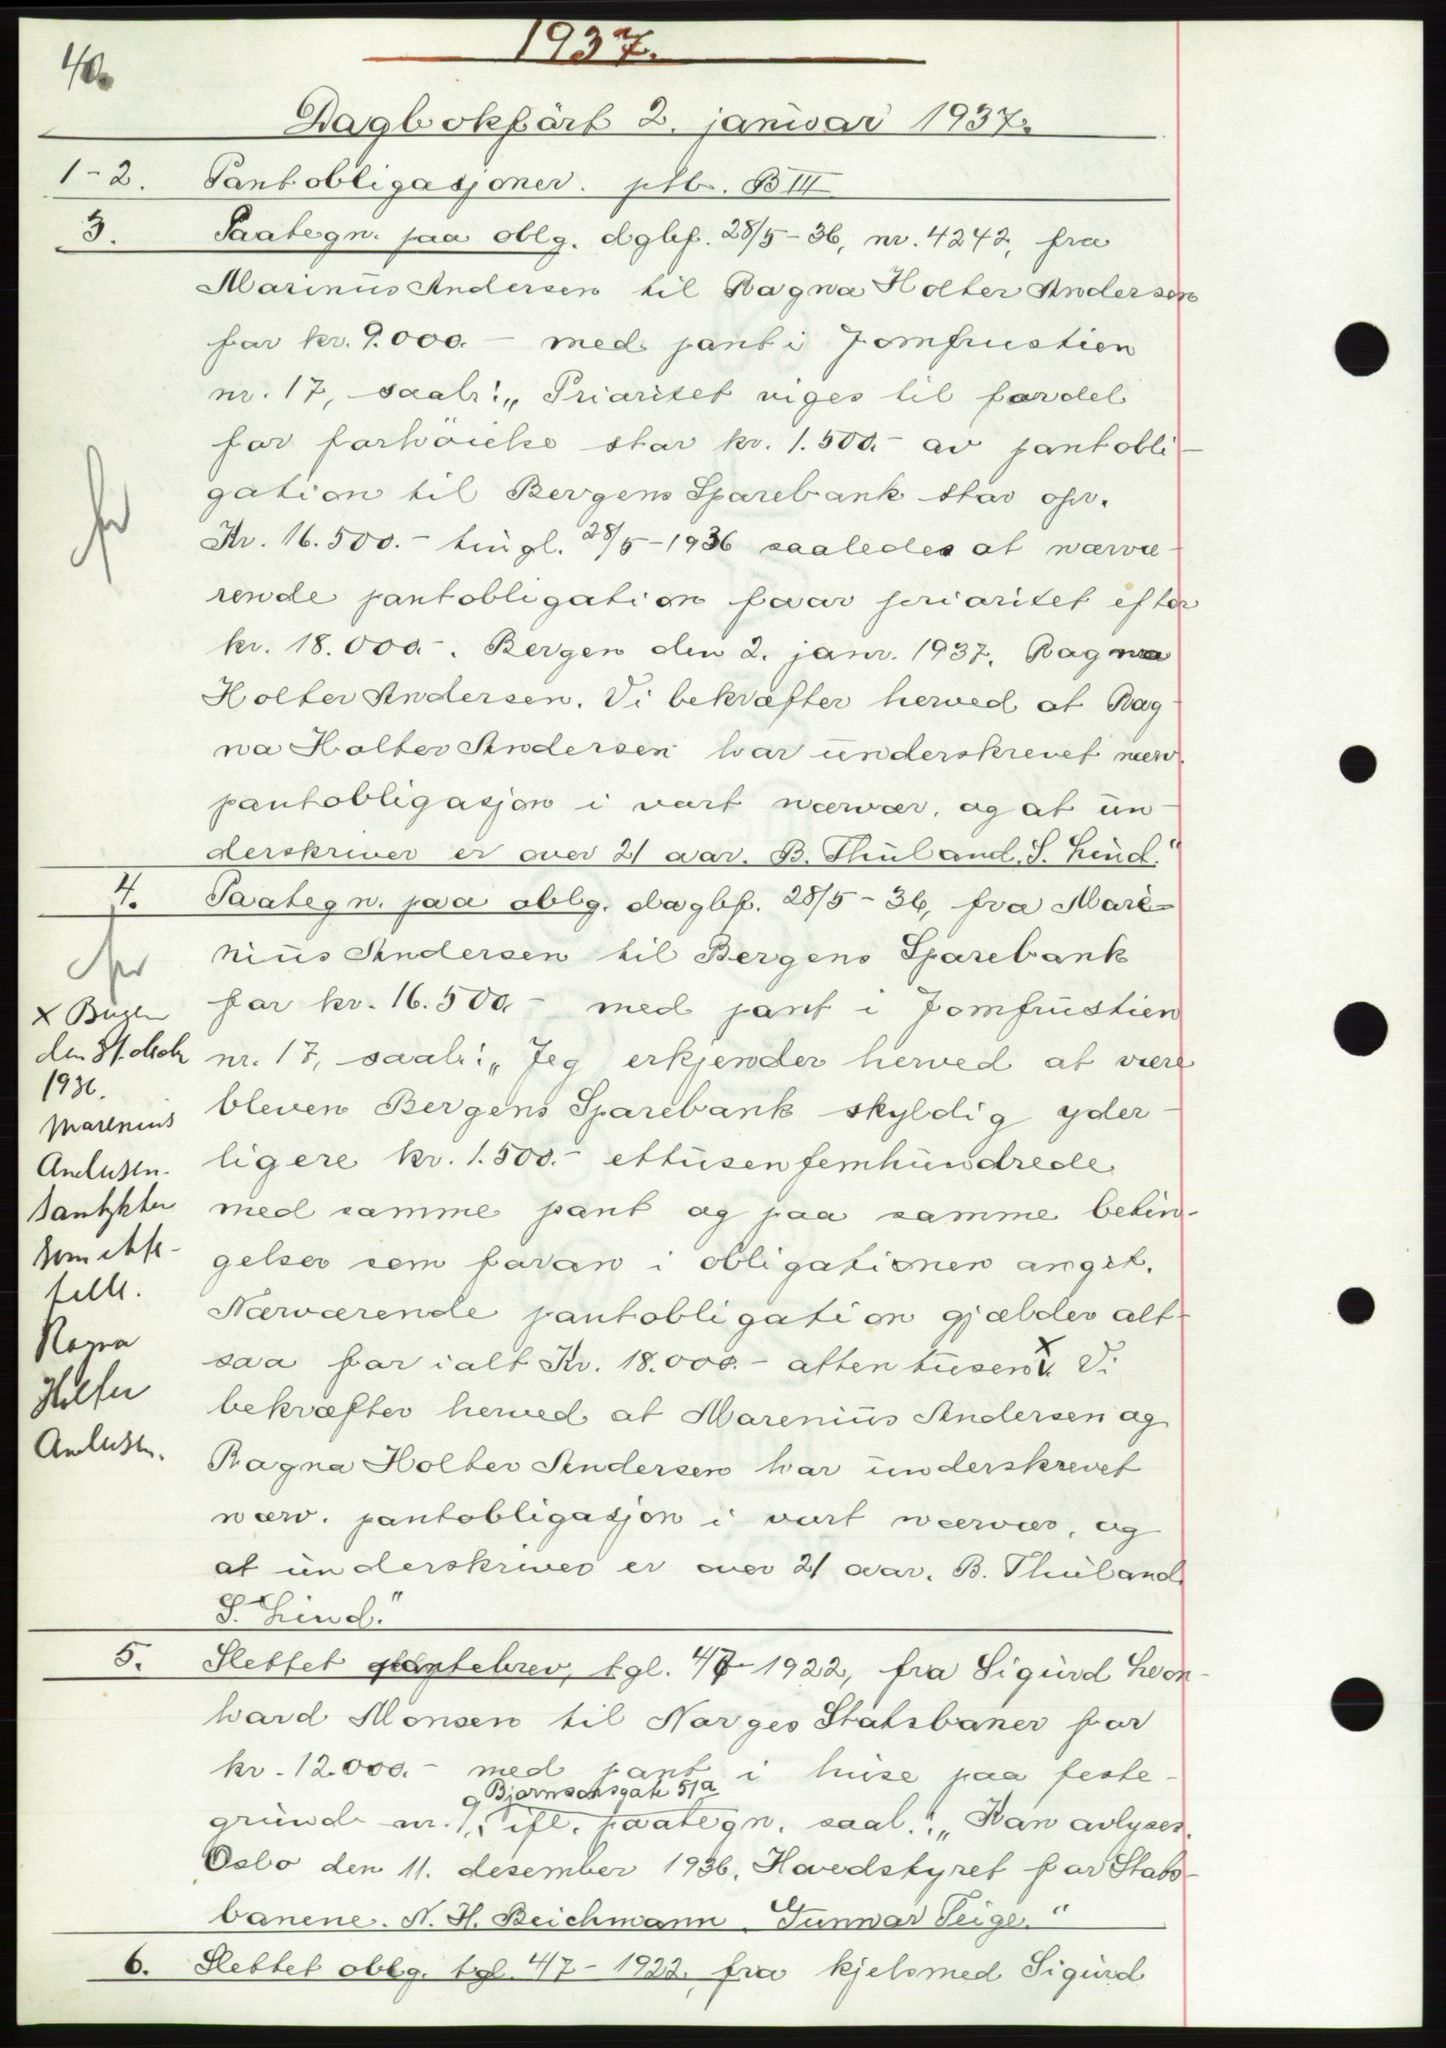 40.
1937.
Dagbokført 2. januar 1937.
1-2. Pantobligasjoner. ptb. B III
3. Paategn. paa oblg. dgbf. 28/5-36, nr. 4242, fra
Marinus Andersen til Ragna Holter Andersen
for kr. 9.000.- med pant i Jomfrustien
nr. 17, saal.: „Prioritet viges til fordel
for forhöielse stor kr. 1.500.- av pantobli-
gation til Bergens Sparebank stor opr.
Kr. 16.500.- tingl. 28/5-1936 saaledes at nærvæ-
rende pantobligation faar prioritet efter
kr. 18.000.-. Bergen den 2. janr. 1937. Ragna
Holter Andersen. Vi bekræfter herved at Rag-
na Holter Andersen har underskrevet nærv.
pantobligasjon i vort nærvær, og at un-
derskriver er over 21 aar. B. Thuland. S. Lind."
4. Paategn. paa oblg. dagbf. 28/5-36, fra Mare-
nius Andersen til Bergens Sparebank
for kr. 16.500.- med pant i Jomfrustien
nr. 17, saal.: „Jeg erkjender herved at være
bleven Bergens Sparebank skyldig yder-
ligere kr. 1.500.- ettusenfemhundrede
med samme pant og paa samme betin-
gelser som foran i obligationen angit.
Nærværende pantobligation gjælder alt-
saa for ialt Kr. 18.000.- atten tusen x. Vi
bekræfter herved at Marenius Andersen og
Ragna Holter Andersen har underskrevet
nærv. pantobligasjon i vort nærvær, og
at underskriver er over 21 aar. B. Thuland.
S. Lind."
x Bergen
den 31. decbr
1936.
Marenius
Andersen.
Samtykker
som ekte-
felle.
Ragna
Holter
Andersen.
5. Slettet tgl. 4/7-1922, fra Sigurd Leon-
hard Monsen til Norges Statsbaner for
kr. 12.000.- med pant i huse paa feste-
Bjørnsonsgate 51a
grund nr. 1, ifl. paategn. saal.: „Kan avlyses.
Oslo den 11. desember 1936. Hovedstyret for Stats-
banene. N. H. Beichmann. Gunnar Teige."
6. Slettet oblg. tgl. 4/7-1922, fra kjelsmed Sigurd